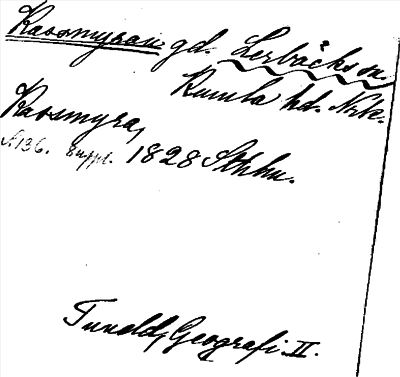 Kassmyran gd. Lerbäcks sn.
Kumla hd. Nrke.
Kassmyra,
N 136. Suppl. 1828 Sthlm.
Tuneld, Geografi. II.